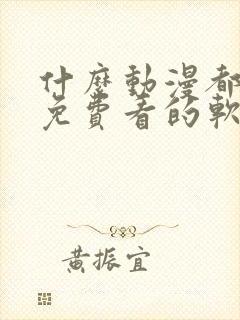 什麼動漫都
免費看的軟
黃振宜